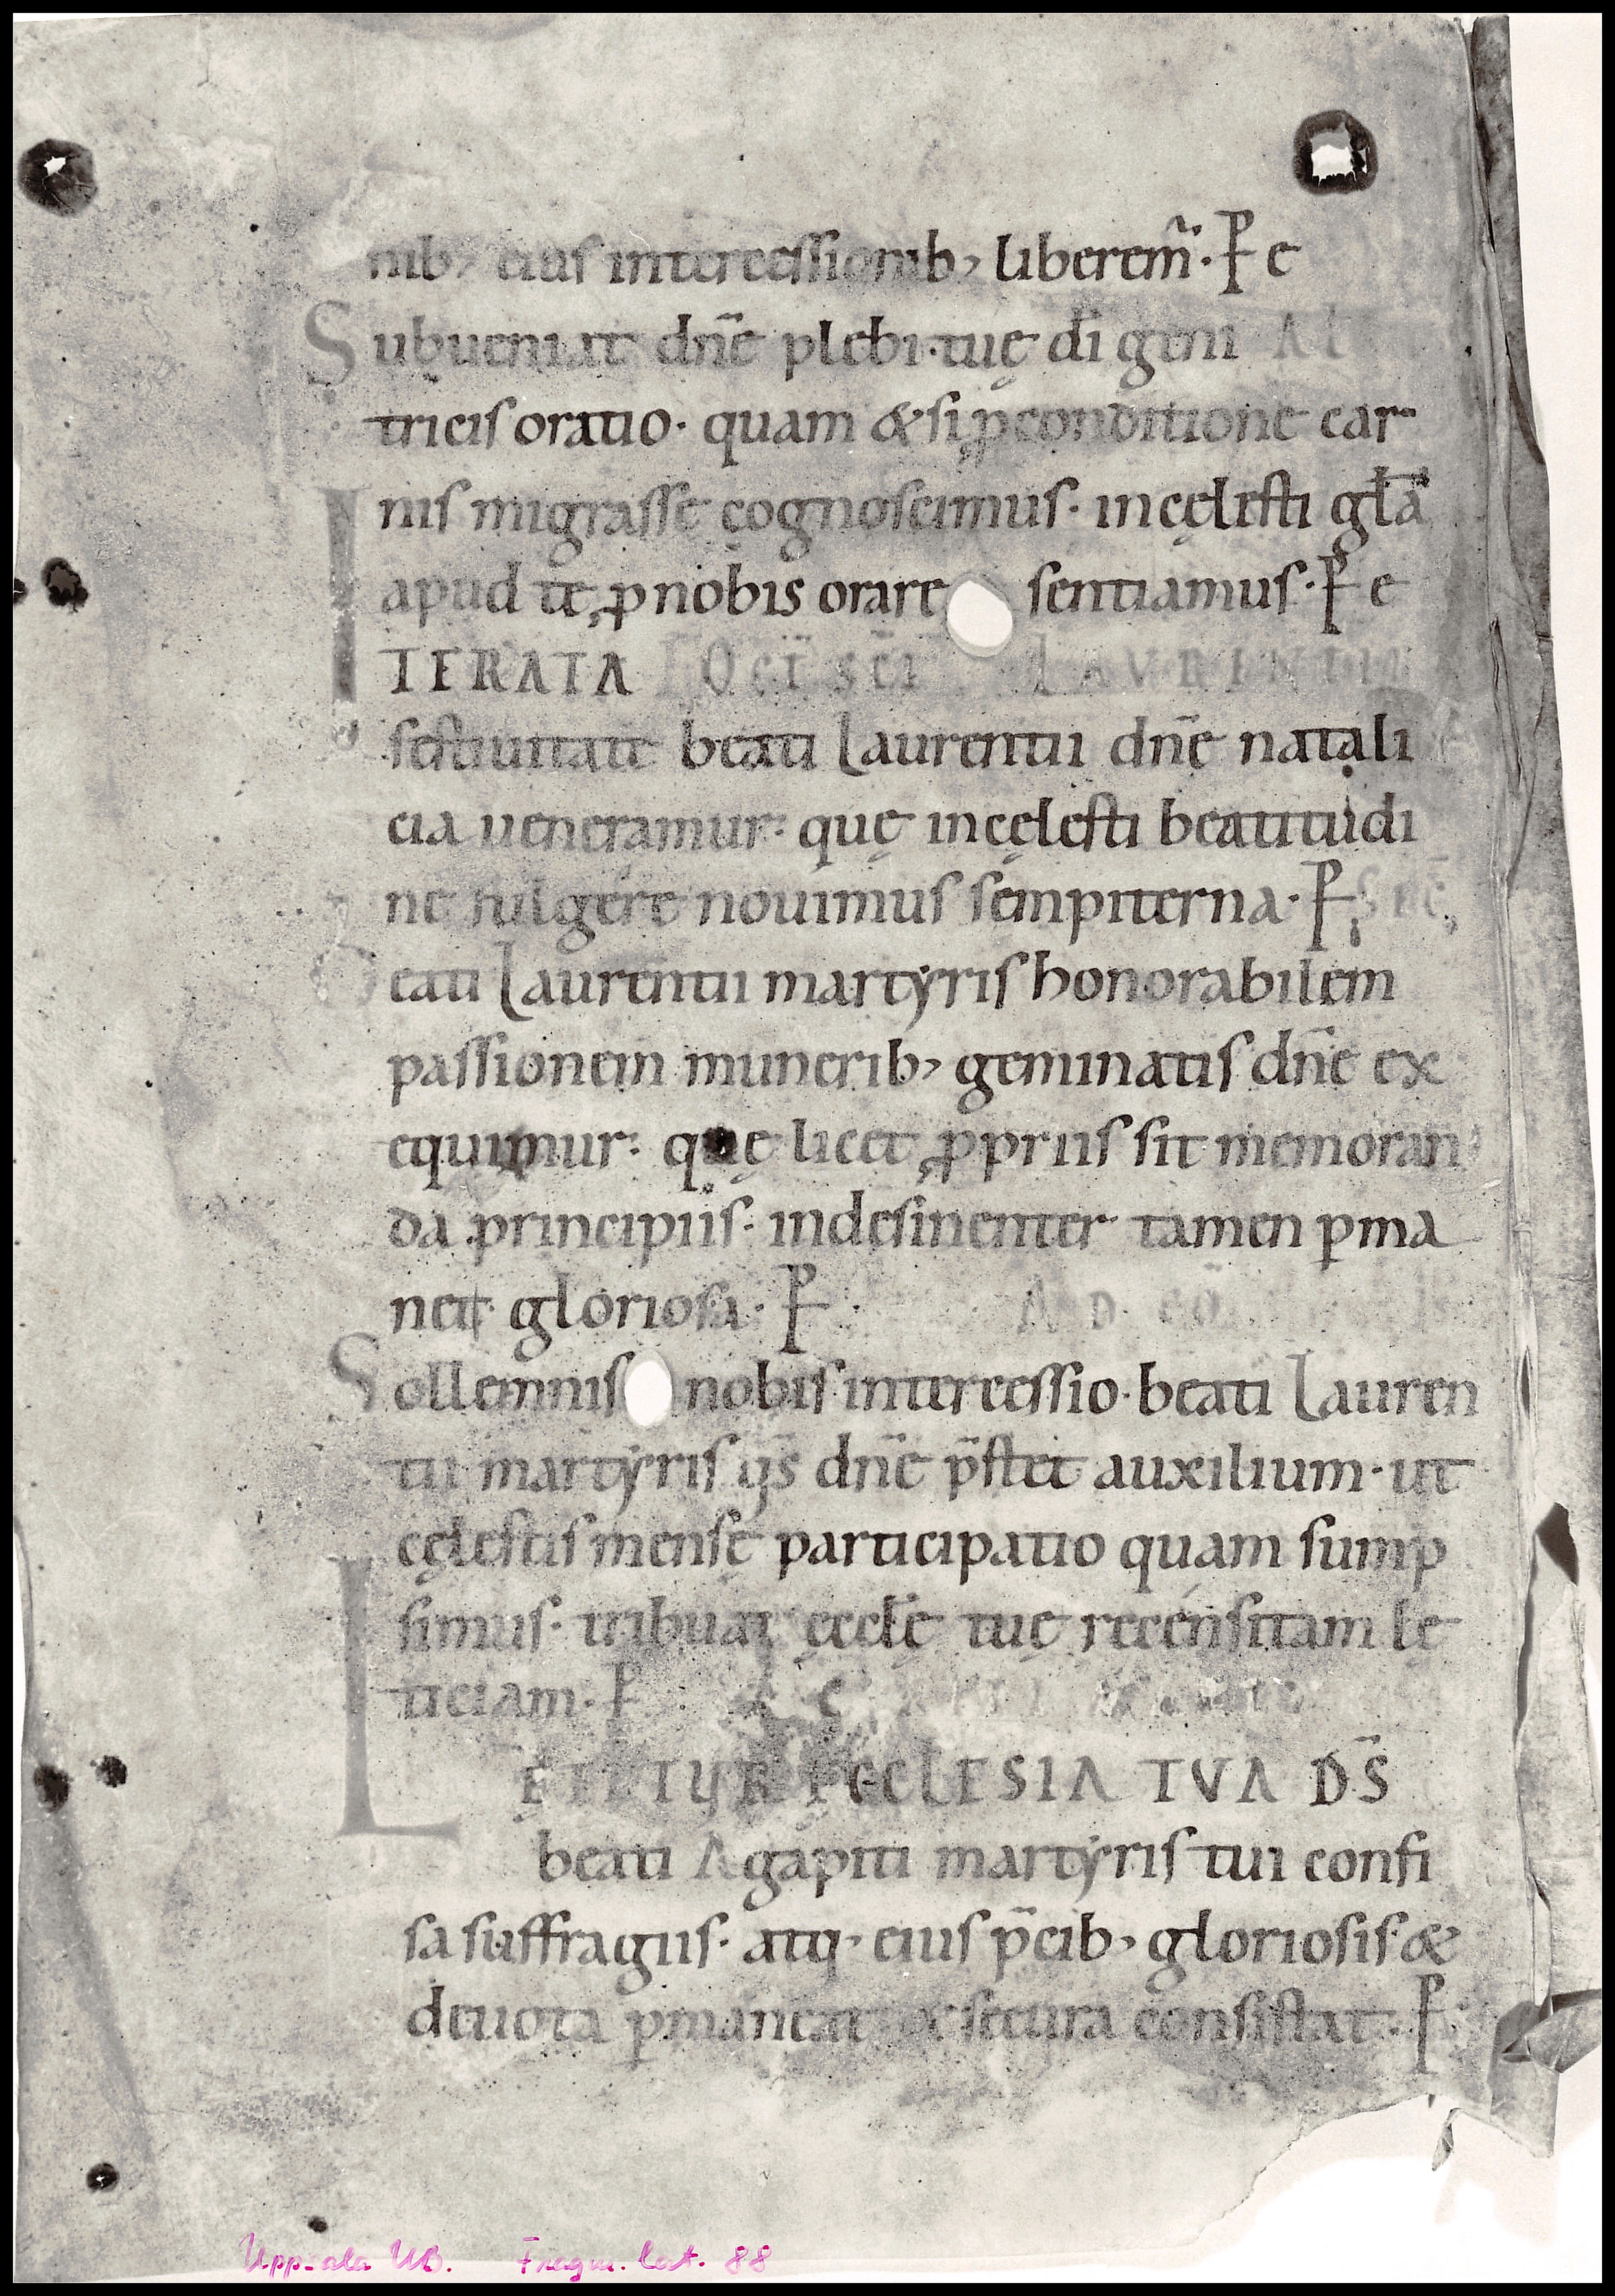 nib; eius intercessionib; liberem̃·P e
Subueniat dñe plebi·tuę dī geni A
tricis oratio· quam & si ꝓ conditione car
nis migrasse cognoscimus· in cęlesti gl̄a
apud te, ꝓ nobis orare sentiamus·P e
ITERATA OCT̄ SC̄I LAVRENTII
festiuitate beati Laurentii dñe natali
cia ueneramur· quę in cęlesti beatitudi
ne fulgere nouimus sempiterna·P
Beati Laurentii martyris honorabilem
passionem munerib; geminatis dñe ex
equimur: quę licet ꝓpriis sit memoran
da principiis· indesinenter tamen p̱ma
net gloriosa·P AD CŌ
Sollemnis nobis intercessio·beati Lauren
tii martyris q̄s dñe p̄stet auxilium·ut
cęlestis mensę participatio quam sump
simus· tribuat ęccl̄ę tuę recensitam lę
ticiam·P
LĘTETVR ECCLESIA TVA D̄S
beati Agapiti martyris tui confi
sa suffragiis· atq· eius p̄cib; gloriosis·&
deuota p̱maneat & secura consistat·P
Uppsala UB. Fragm. lat. 88